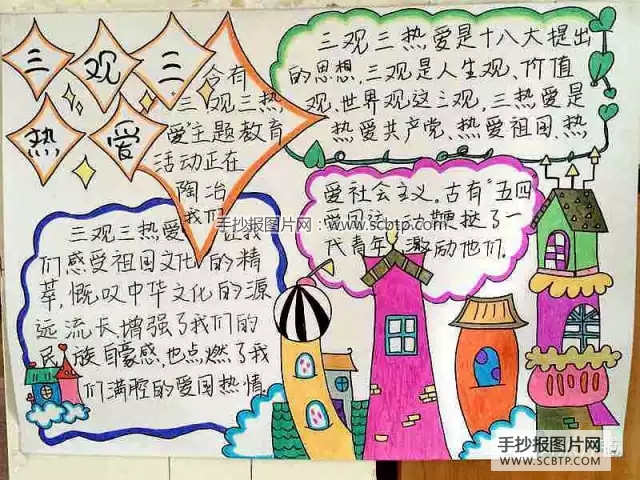 三观三
热爱
今有
"三观三热
爱"主题教育
活动正在
陶冶
我们
三观三热爱是十八大提出
的思想,三观是人生观、价值
观、世界观这三观,三热爱是
热爱共产党、热爱祖国、热
爱社会主义。古有"五四
爱国运动鞭挞了一
代青年,激励他们。
三观三热爱 让我
们感受祖国文化 的精
萃,慨叹中华文化的源
远流长增强了我们的
民族自豪感,也点燃了我
们满腔的爱国热情
手抄报图片网:www.scbtp.com
手抄报图片网
WWW.SCBTP.COM